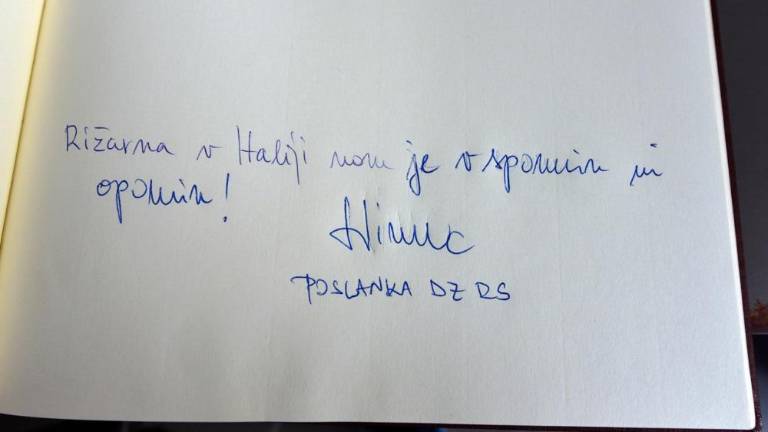 Rižarna v Italiji nam je v spomin in
opomin!
POSLANKA DZ RS